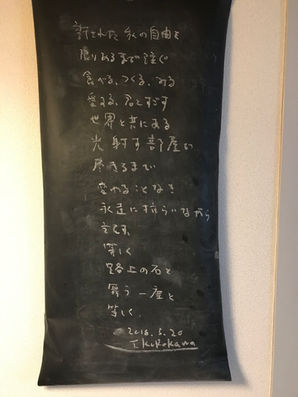 許された 永の自由を
限りあるまで注ぐ
食べる、つくる、みる
愛する、君とすごす
世界と共にある
光射す部屋が
尽きるまで
変わることなき
永遠に抗らいながら
立てよ
等しく
路上の石と
舞う一塵と
等しく
2016.5.20
T Kurokawa